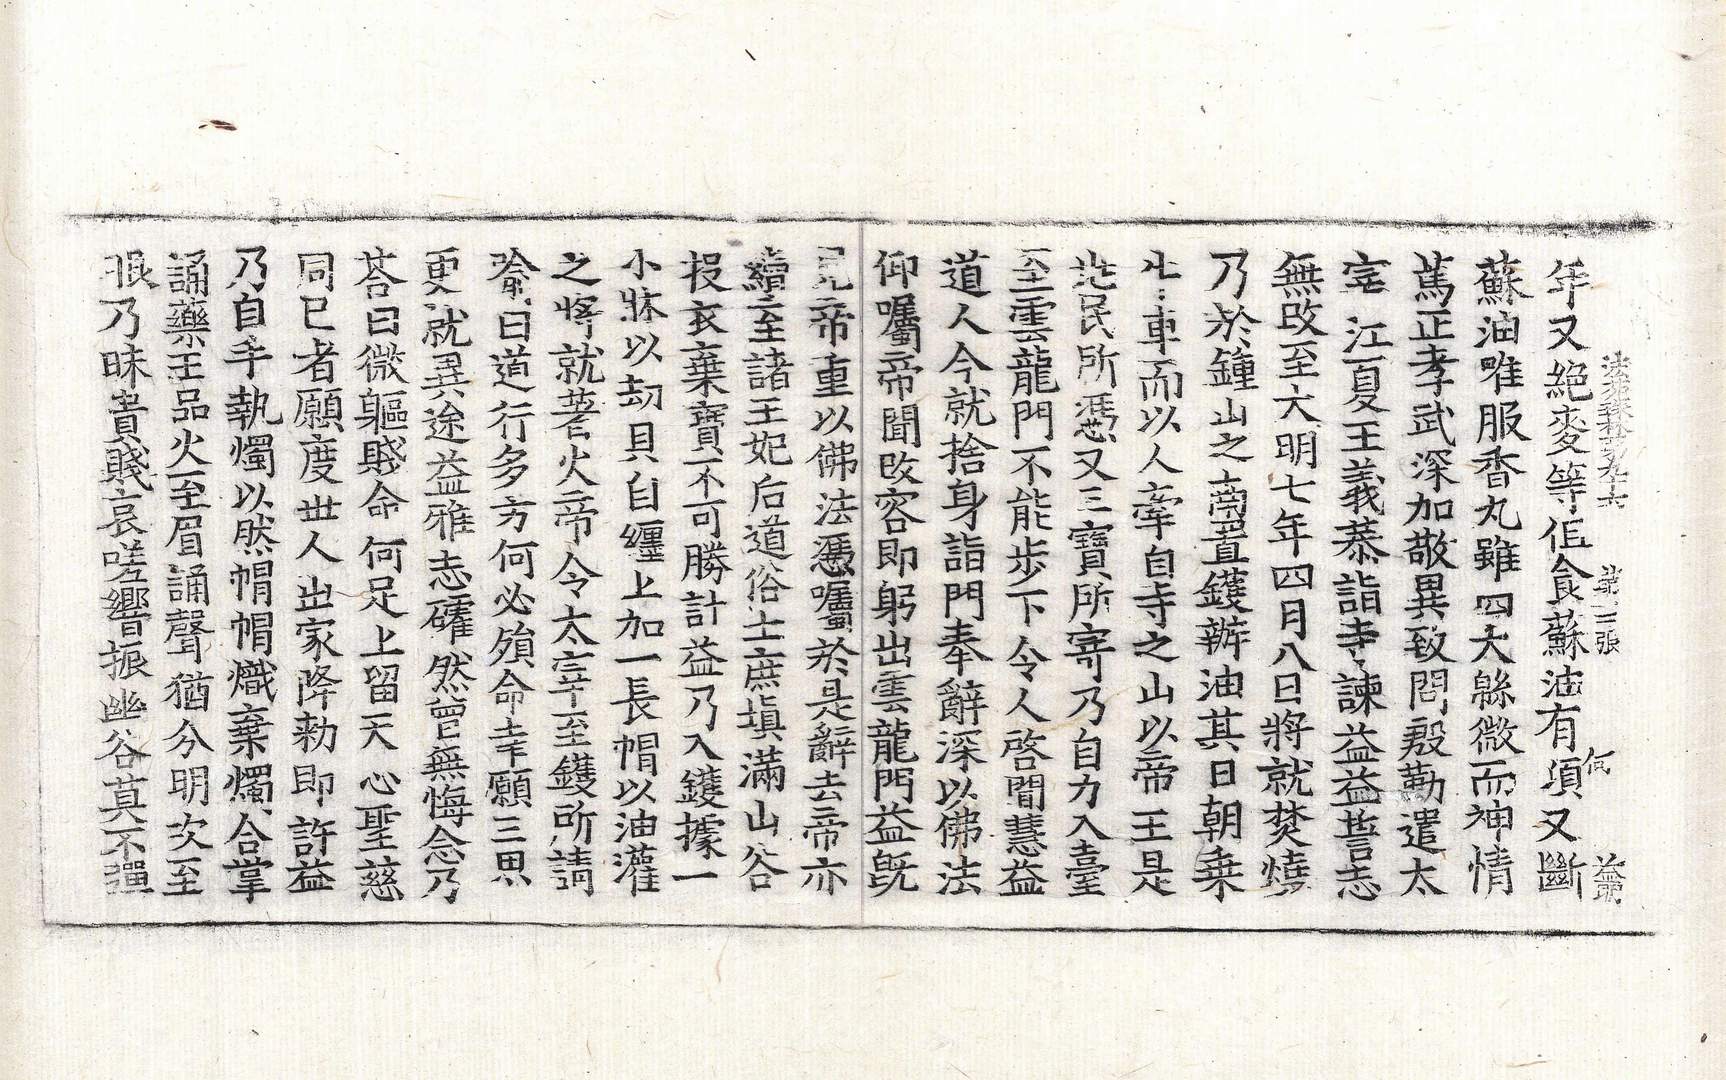 法苑珠林卷九十六 第二張 何 益玽
年又絕麥等但食蘇油有頃又斷
蘇油唯服香丸雖四大緜微而神情
篤正孝武深加敬異致問殷勤遣太
宰江夏王義恭詣寺諫益益誓志
無改至大明七年四月八日將就焚燒
乃於鍾山之南置鑊辦油其日朝乗
牛車而以人牽自寺之山以帝王是
兆民所憑又三寳所寄乃自力入臺
至雲龍門不能步下令人啓聞慧益
道人今就捨身詣門奉辭深以佛法
仰囑帝聞改容即躬出雲龍門益旣
見帝重以佛法憑囑於是辭去帝亦
續至諸王妃后道俗士庶塡滿山谷
投衣棄寳不可勝計益乃入鑊據一
小牀以劫貝自纏上加一長帽以油灌
之將就著火帝令太宰至鑊所請
喻曰道行多方何必殞命幸願三思
更就異途益雅志確然曾無悔念乃
荅曰微軀賤命何足上留天心聖慈
同已者願度世人出家降勑即許益
乃自手執燭以然帽帽熾棄燭合掌
誦藥王品火至眉誦聲猶分明次至
眼乃昧貴賤哀嗟響振幽谷莫不彈